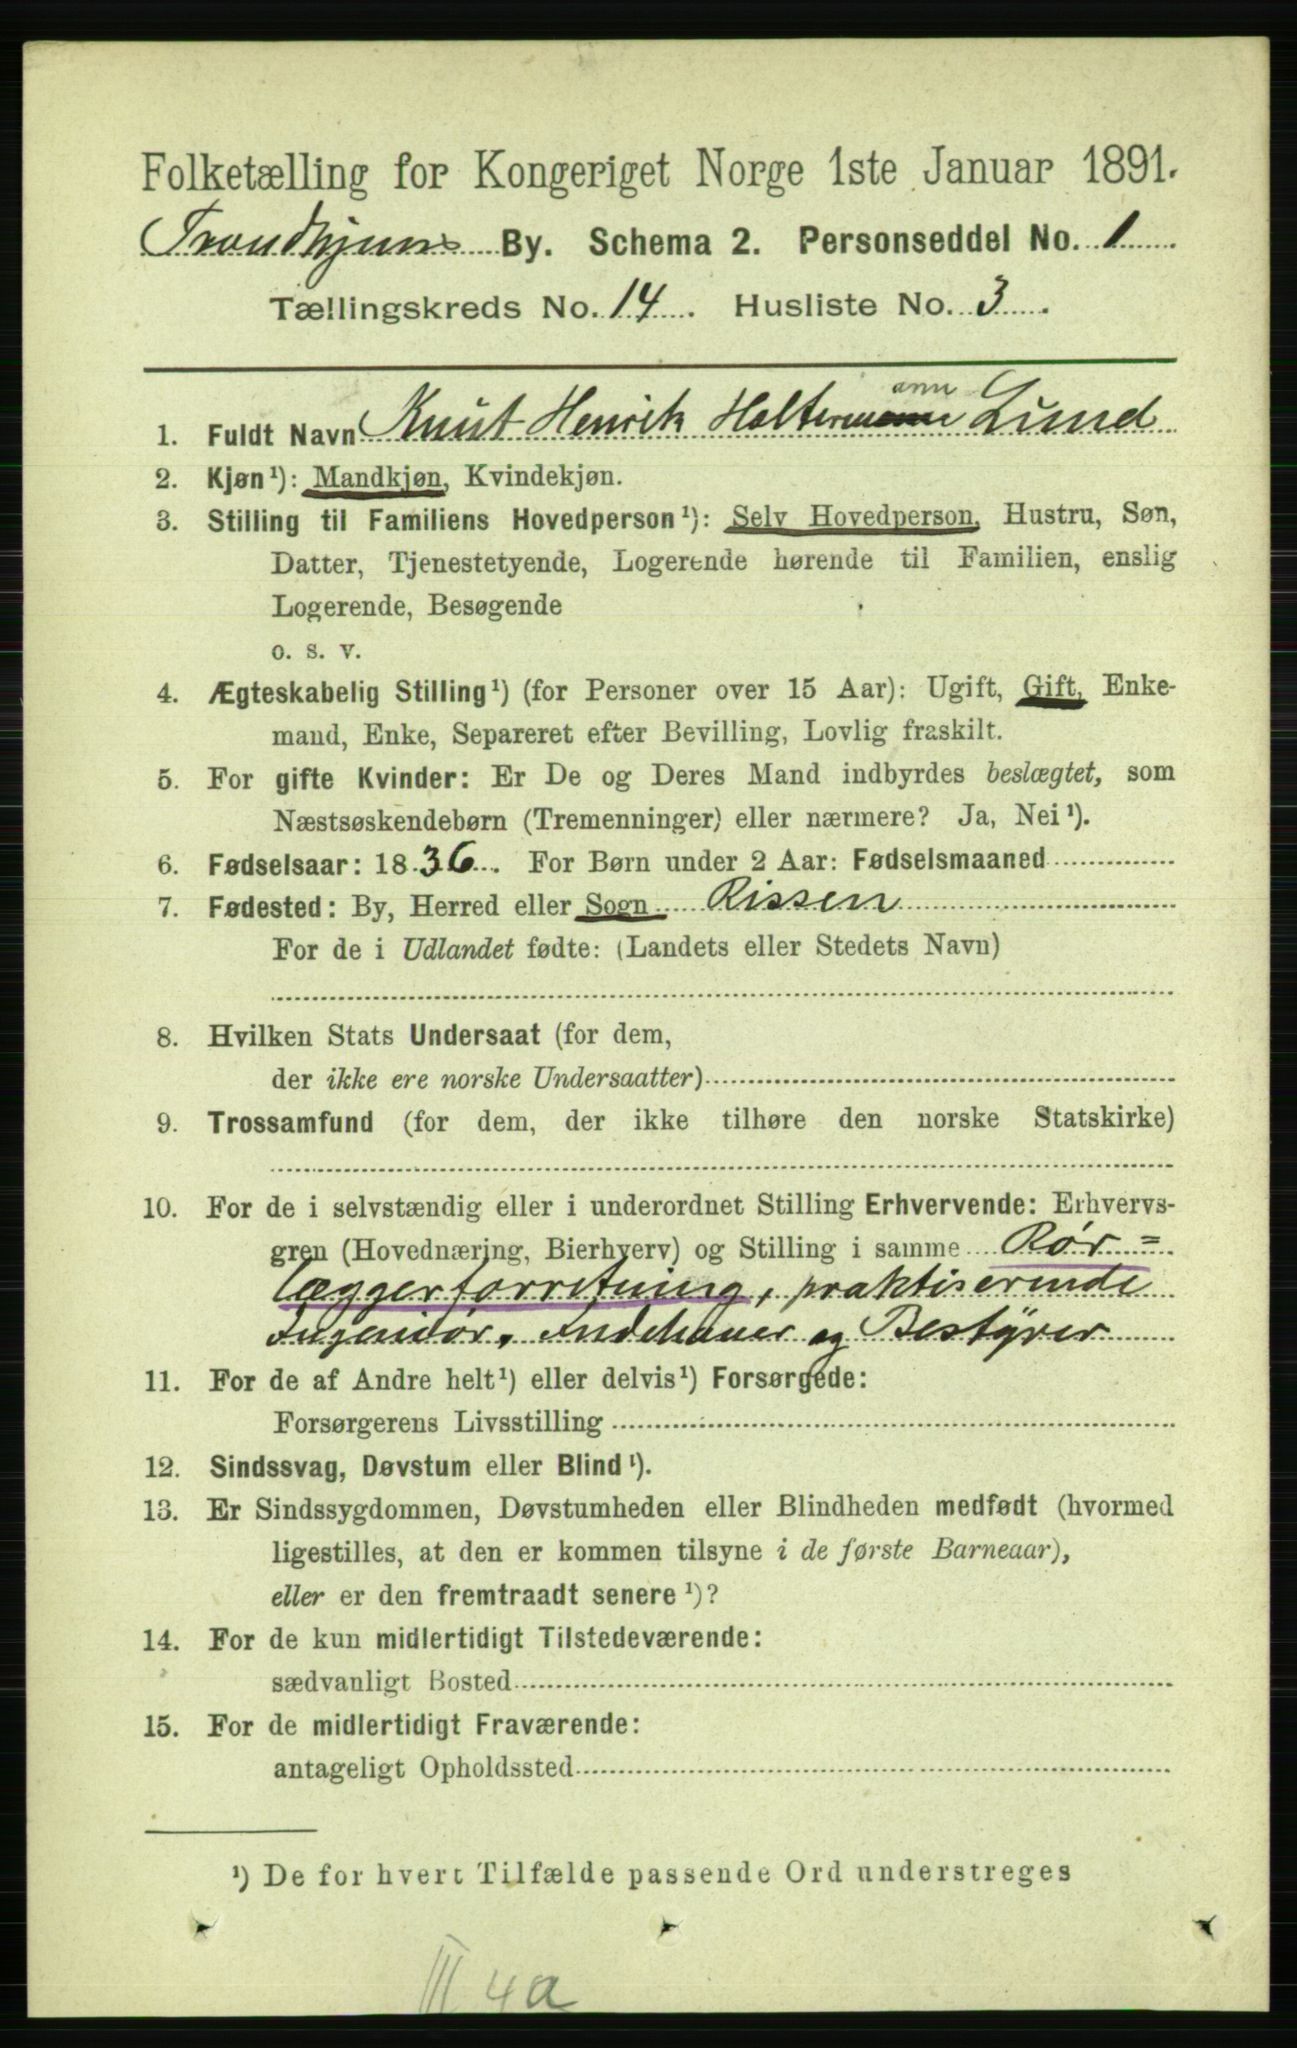 Folketælling for Kongeriget Norge 1ste Januar 1891.
Trondhjems By. Schema 2. Personseddel No. 1
Tællingskreds No. 14. Husliste No. 3.
ann
1. Fuldt Navn Knut Henrik Holtermann Lund
2. Kjøn¹): Mandkjøn, Kvindekjøn.
3. Stilling til Familiens Hovedperson¹): Selv Hovedperson, Hustru, Søn,
Datter, Tjenestetyende, Logerende hørende til Familien, enslig
Logerende, Besøgende
o. s. v.
4. Ægteskabelig Stilling¹) (for Personer over 15 Aar): Ugift, Gift, Enke-
mand, Enke, Separeret efter Bevilling, Lovlig fraskilt.
5. For gifte Kvinder: Er De og Deres Mand indbyrdes beslægtet, som
Næstsøskendebørn (Tremenninger) eller nærmere? Ja, Nei¹).
6. Fødselsaar: 1836. For Børn under 2 Aar: Fødselsmaaned
7. Fødested: By, Herred eller Sogn Rissen
For de i Udlandet fødte: (Landets eller Stedets Navn)
8. Hvilken Stats Undersaat (for dem,
der ikke ere norske Undersaatter)
9. Trossamfund (for dem, der ikke tilhøre den norske Statskirke)
10. For de i selvstændig eller i underordnet Stilling Erhvervende: Erhvervs-
gren (Hovednæring, Bierhverv) og Stilling i samme Rør=
læggerforretning, praktiserende
Ingeniør, Indehaver og Bestyrer
11. For de af Andre helt¹) eller delvis¹) Forsørgede:
Forsørgerens Livsstilling
12. Sindssvag, Døvstum eller Blind¹).
13. Er Sindssygdommen, Døvstumheden eller Blindheden medfødt (hvormed
ligestilles, at den er kommen tilsyne i de første Barneaar),
eller er den fremtraadt senere¹)?
14. For de kun midlertidigt Tilstedeværende:
sædvanligt Bosted
15. For de midlertidigt Fraværende:
antageligt Opholdssted
¹) De for hvert Tilfælde passende Ord understreges
III 4a